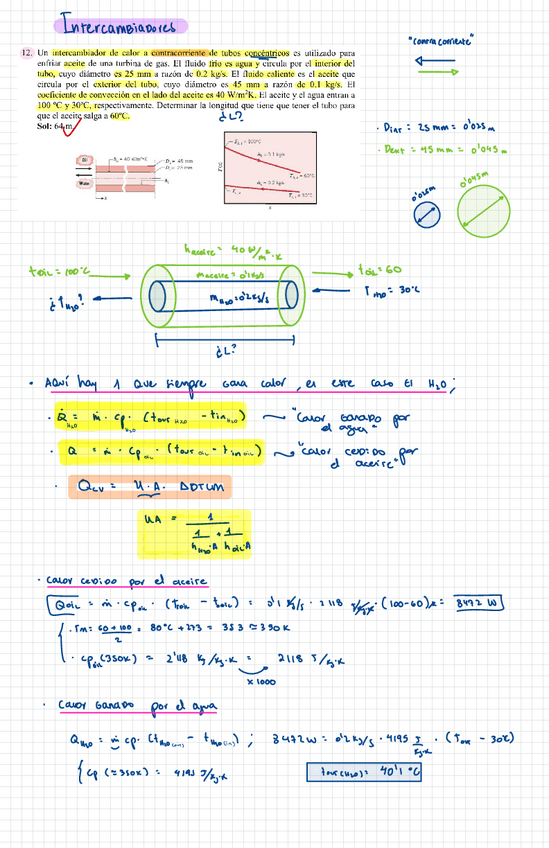 Intercambiadores
12. Un intercambiador de calor a contracorriente de tubos concéntricos es utilizado para
enfriar aceite de una turbina de gas. El fluido frio es agua y circula por el interior del
tubo, cuyo diámetro es 25 mm a razón de 0.2 kg/s. El fluido caliente es el aceite que
circula por el exterior del tubo, cuyo diámetro es 45 mm a razón de 0.1 kg/s. El
coeficiente de convección en el lado del aceite es 40 W/m²K. El aceite y el agua entran a
100 ºC y 30ºC, respectivamente. Determinar la longitud que tiene que tener el tubo para
que el aceite salga a 60ºC.
¿L?
Sol: 64 m
"contracorriente"
· Dint = 25 mm = 0'025 m
· Dext = 45 mm = 0'045 m
0'025m
0'045m
Oil
Water
Dₒ = 45 mm
Dᵢ = 25 mm
T(ºC)
haceite = 40 W/m²·K
toil = 100ºC
maceite = 0'1 kg/s
toil = 60
¿TH2O?
mH2O = 0'2 kg/s
TH2O = 30ºC
¿L?
· Aquí hay 1 que siempre gana calor, en este caso el H2O;
· Q̇H2O = ṁ · cpH2O · (tout H2O - tin H2O) "Calor ganado por el agua"
· Q = ṁ · cp oil · (tout oil - tin oil) "Calor cedido por el aceite"
· Qcv = U·A· ΔDTLM
UA = 1 / (1/hH2O·A + 1/hoil·A)
· Calor cedido por el aceite
Qoil = ṁ · cp oil · (toil - toil) = 0'1 kg/s · 2118 J/kg·K · (100-60)K = 8472 W
· Tm = 60+100/2 = 80ºC + 273 = 353 ≈ 350K
· cp oil (350K) = 2'118 KJ/kg·K = 2118 J/kg·K
x 1000
· Calor ganado por el agua
QH2O = ṁ cp · (tH2O(out) - tH2O(in)) ; 8472W = 0'2 kg/s · 4195 J/kg·K · (Tout - 30ºC)
cp (≈350K) = 4195 J/kg·K
tout(H2O) = 40'1 ºC